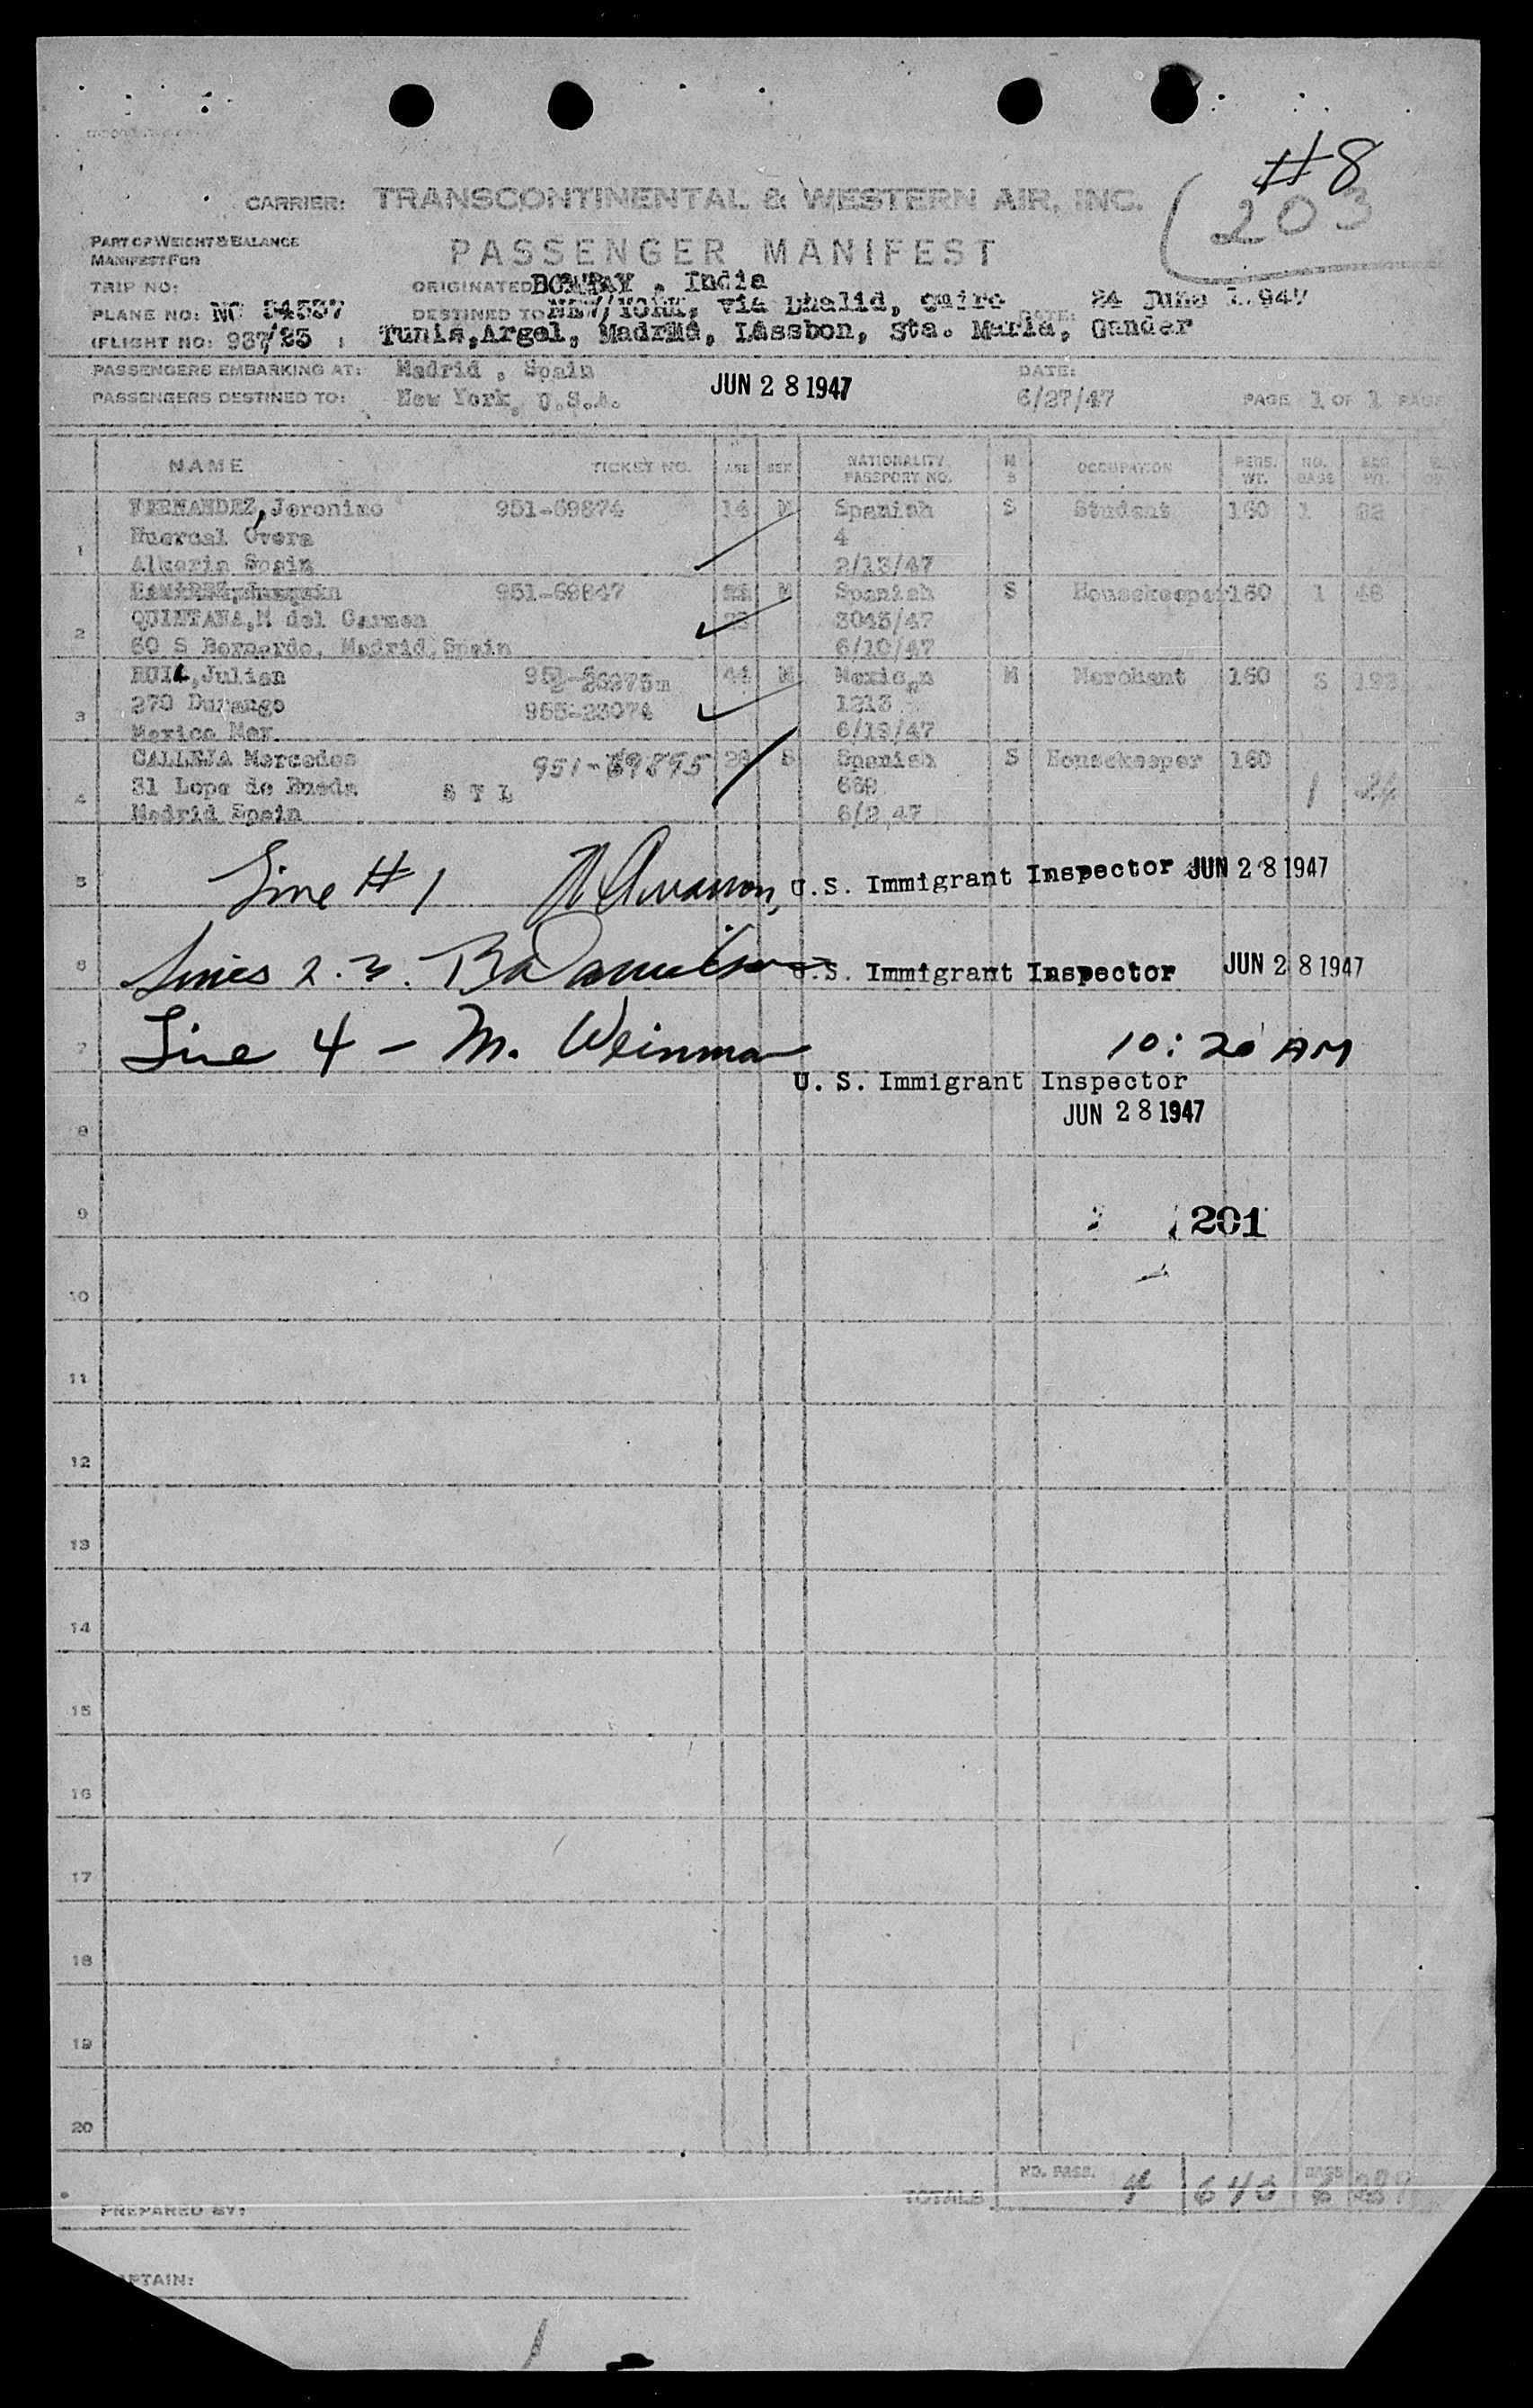 #8
(203
CARRIER: TRANSCONTINENTAL & WESTERN AIR, INC.
PART OF WEIGHT & BALANCE
MANIFEST FOR
PASSENGER MANIFEST
TRIP NO: ORIGINATED BOMBAY, India
PLANE NO: NC DESTINED TO NEW/YORK, via Dhalid, Cairo DATE: 24 June 1.947
(FLIGHT NO: 937/23 ) Tunis, Argel, Madrid, Lissbon, Sta. Maria, Gander
PASSENGERS EMBARKING AT: Madrid , Spain JUN 28 1947 DATE:
PASSENGERS DESTINED TO: New York, U.S.A. 6/27/47 PAGE 1 OF 1 PAGE
NAME TICKET NO. AGE SEX NATIONALITY PASSPORT NO. M S OCCUPATION PERS. WT. NO. BAGS BAG WT.
FERNANDEZ, Jeronimo 951-69874 14 M Spanish S Student 160 1
Huercal Overa 4
1 Almeria Spain 2/13/47
951-69847 M Spanish S Housekeeper 160 1 48
QUINTANA, M del Carmen 3045/47
2 60 S Bernardo, Madrid, Spain 6/10/47
RUIZ, Julian 44 M Mexican M Merchant 160 3
270 Durango 955-23074 1213
3 Mexico Mex. 6/19/47
CALLEJA Mercedes 951-69895 S Spanish S Housekeeper 160
31 Lope de Rueda S T L 1 24
4 Madrid Spain 6/2,47
5 Line #1 U.S. Immigrant Inspector JUN 28 1947
6 Lines 2. 3. U.S. Immigrant Inspector JUN 28 1947
7 Line 4 - M. Weinman 10:20 AM
U. S. Immigrant Inspector
JUN 28 1947
8
9 201
10
11
12
13
14
15
16
17
18
19
20
TOTALS NO. PASS. 4 640 BAGS 6
PREPARED BY:
CAPTAIN:
1